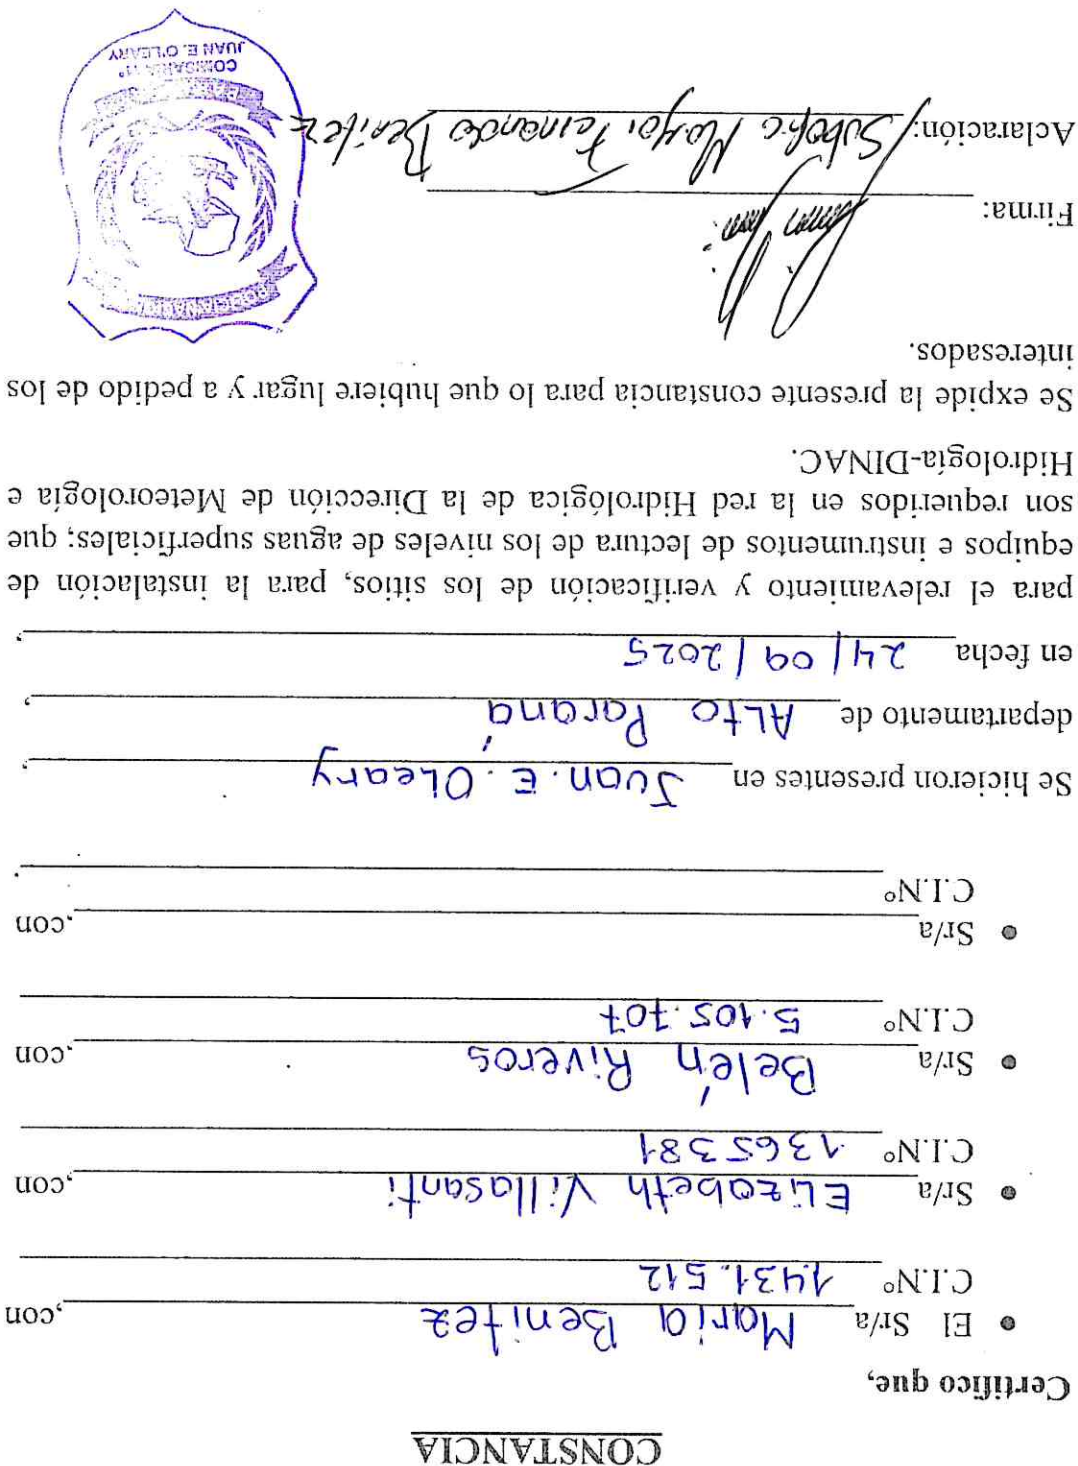 CONSTANCIA
Certifico que,
• El Sr/a María Benitez ,con
C.I.Nº 1.431.512
• Sr/a Elizabeth Villasanti ,con
C.I.Nº 1365381
• Sr/a Belén Riveros ,con
C.I.Nº 5.105.707
• Sr/a ,con
C.I.Nº .
Se hicieron presentes en Juan. E. OLeary ,
departamento de ALto Paraná ,
en fecha 24/09/2025 ,
para el relevamiento y verificación de los sitios, para la instalación de
equipos e instrumentos de lectura de los niveles de aguas superficiales; que
son requeridos en la red Hidrológica de la Dirección de Meteorología e
Hidrología-DINAC.
Se expide la presente constancia para lo que hubiere lugar y a pedido de los
interesados.
Firma:
Aclaración: Subofic Mayor Fernando Benitez
COMISARIA 11º
JUAN E. O'LEARY